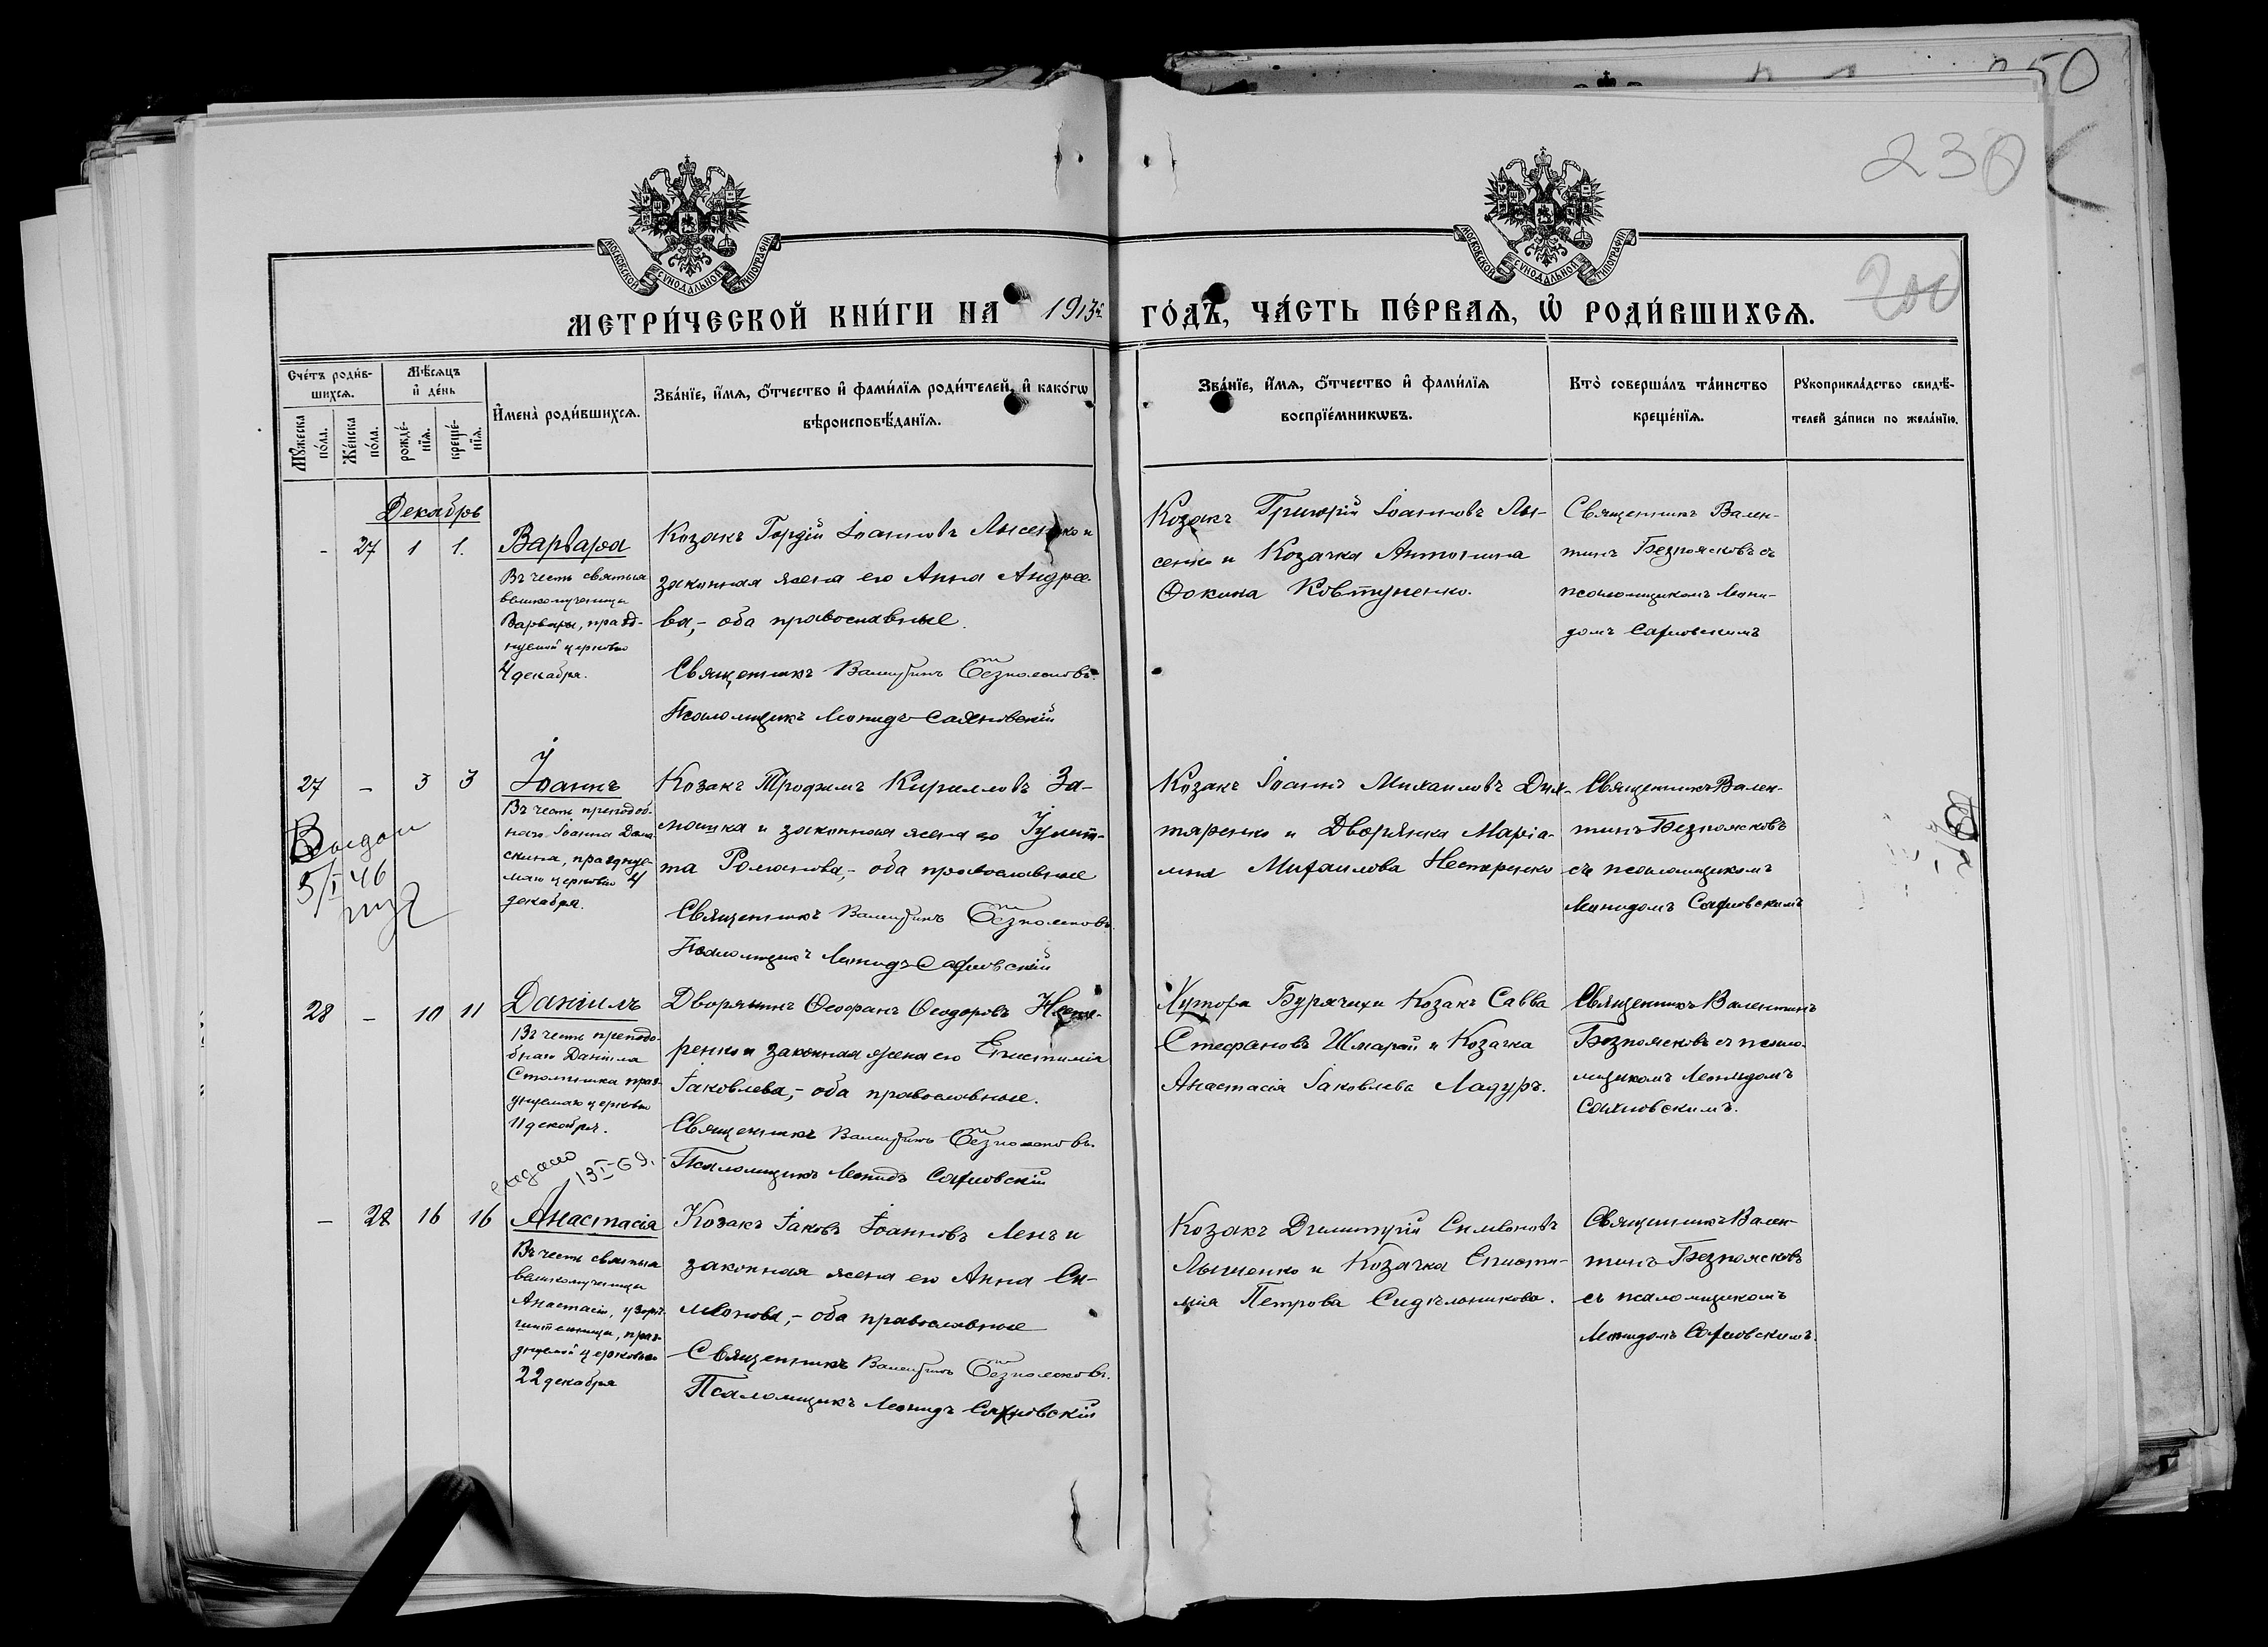 250
230
200
МОСКОВСКОЙ СУНОДАЛЬНОЙ ТИПОГРАФІИ
МОСКОВСКОЙ СУНОДАЛЬНОЙ ТИПОГРАФІИ
МЕТРИ́ЧЕСКОЙ КНИ́ГИ НА 1913 г.
ГО́ДЪ, ЧА́СТЬ ПЕ́РВАѦ, Ѽ РОДИ́ВШИХСѦ.
Сче́тъ роди́в-
шихсѧ.
Мѣ́сѧцъ
и҆ де́нь
Мꙋ́жеска по́ла.
Же́нска по́ла.
рожде́-
нїѧ.
креще́-
нїѧ.
И҆мена̀ роди́вшихсѧ.
Зва́нїе, и҆́мѧ, ѻ҆́тчество и҆ фами́лїѧ роди́телей, и҆ како́гѡ
вѣроисповѣ́данїѧ.
Зва́нїе, и҆́мѧ, ѻ҆́тчество и҆ фами́лїѧ
воспрїе́мникѡвъ.
Кто̀ соверша́лъ та́инство
креще́нїѧ.
Рꙋкоприкла́дство свидѣ́-
телей за́писи по жела́нїю.
Декабрь
- 27 1 1.
Варвара
Въ честь святыя
великомученицы
Варвары, празд-
нуемой церковью
4 декабря.
Козакъ Гордій Іоанновъ Лысенко и
законная жена его Анна Андрее-
ва,- оба православные.
Священникъ Валентинъ Безпоясковъ.
Псаломщикъ Леонидъ Сахновскій
Козакъ Григорій Іоанновъ Лы-
сенко и Козачка Антонина
Фокина Ковтуненко.
Священникъ Вален-
тинъ Безпоясковъ съ
псаломщикомъ Леони-
домъ Сахновскимъ
27 - 3 3
Іоаннъ
Въ честь преподоб-
наго Іоанна Дама-
скина, празднуе-
маго церковью 4
декабря.
Выдан
5/I 46
Козакъ Трофимъ Кирилловъ За-
мошка и законная жена его Іулит-
та Романова,- оба православные
Священникъ Валентинъ Безпоясковъ.
Псаломщикъ Леонидъ Сахновскій
Козакъ Іоаннъ Михаиловъ Дих-
тяренко и Дворянка Маріа-
мна Михаилова Нестеренко
Священникъ Вален-
тинъ Безпоясковъ
съ псаломщикомъ
Леонидомъ Сахновскимъ
28 - 10 11
Даніилъ
Въ честь преподо-
бнаго Даніила
Столпника праз-
днуемаго церковью
11 декабря.
выдано
13 I-69.
Дворянинъ Ѳеофанъ Ѳеодоровъ Несте-
ренко и законная жена его Епистимія
Іаковлева,- оба православные.
Священникъ Валентинъ Безпоясковъ.
Псаломщикъ Леонидъ Сахновскій
Хутора Бурячихи Козакъ Савва
Стефановъ Шмарай и Козачка
Анастасія Іаковлева Ладуръ.
Священникъ Валентинъ
Безпоясковъ съ псало-
мщикомъ Леонидомъ
Сахновскимъ.
- 28 16 16
Анастасія
Въ честь святыя
великомученицы
Анастасіи, узорѣ-
шительницы, праз-
днуемой церковью
22 декабря
Козакъ Іаковъ Іоанновъ Ленъ и
законная жена его Анна Си-
меонова,- оба православные
Священникъ Валентинъ Безпоясковъ.
Псаломщикъ Леонидъ Сахновскій
Козакъ Димитрій Симеоновъ
Лымченко и Козачка Еписти-
мія Петрова Сидѣльникова.
Священникъ Вален-
тинъ Безпоясковъ
съ псаломщикомъ
Леонидомъ Сахновскимъ.